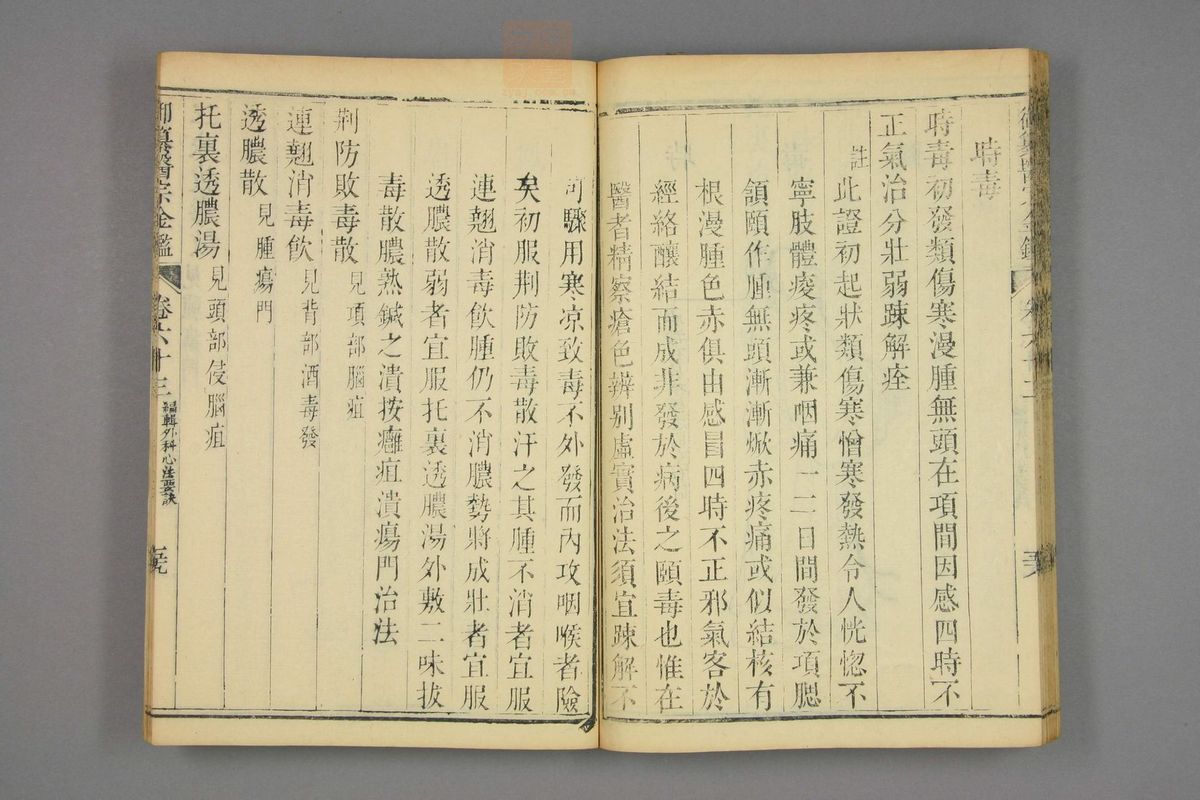 時毒
時毒初發類傷寒漫腫無頭在項間因感四時不
正氣治分壯弱踈解痊
註
此證初起狀類傷寒憎寒發熱令人恍惚不
寧肢體痠疼或兼咽痛一二日間發於項腮
頷頤作腫無頭漸漸焮赤疼痛或似結核有
根漫腫色赤俱由感冒四時不正邪氣客於
經絡釀結而成非發於病後之頤毒也惟在
醫者精察瘡色辨別虛實治法須宜踈解不
可驟用寒凉致毒不外發而內攻咽喉者險
矣初服荆防敗毒散汗之其腫不消者宜服
連翹消毒飲腫仍不消膿勢將成壯者宜服
透膿散弱者宜服托裏透膿湯外敷二味拔
毒散膿熟鍼之潰按癰疽潰瘍門治法
荆防敗毒散見項部腦疽
連翹消毒飲見背部酒毒發
透膿散見腫瘍門
托裏透膿湯見頭部侵腦疽
御纂醫宗金鑑
卷六十三
編輯外科心法要訣